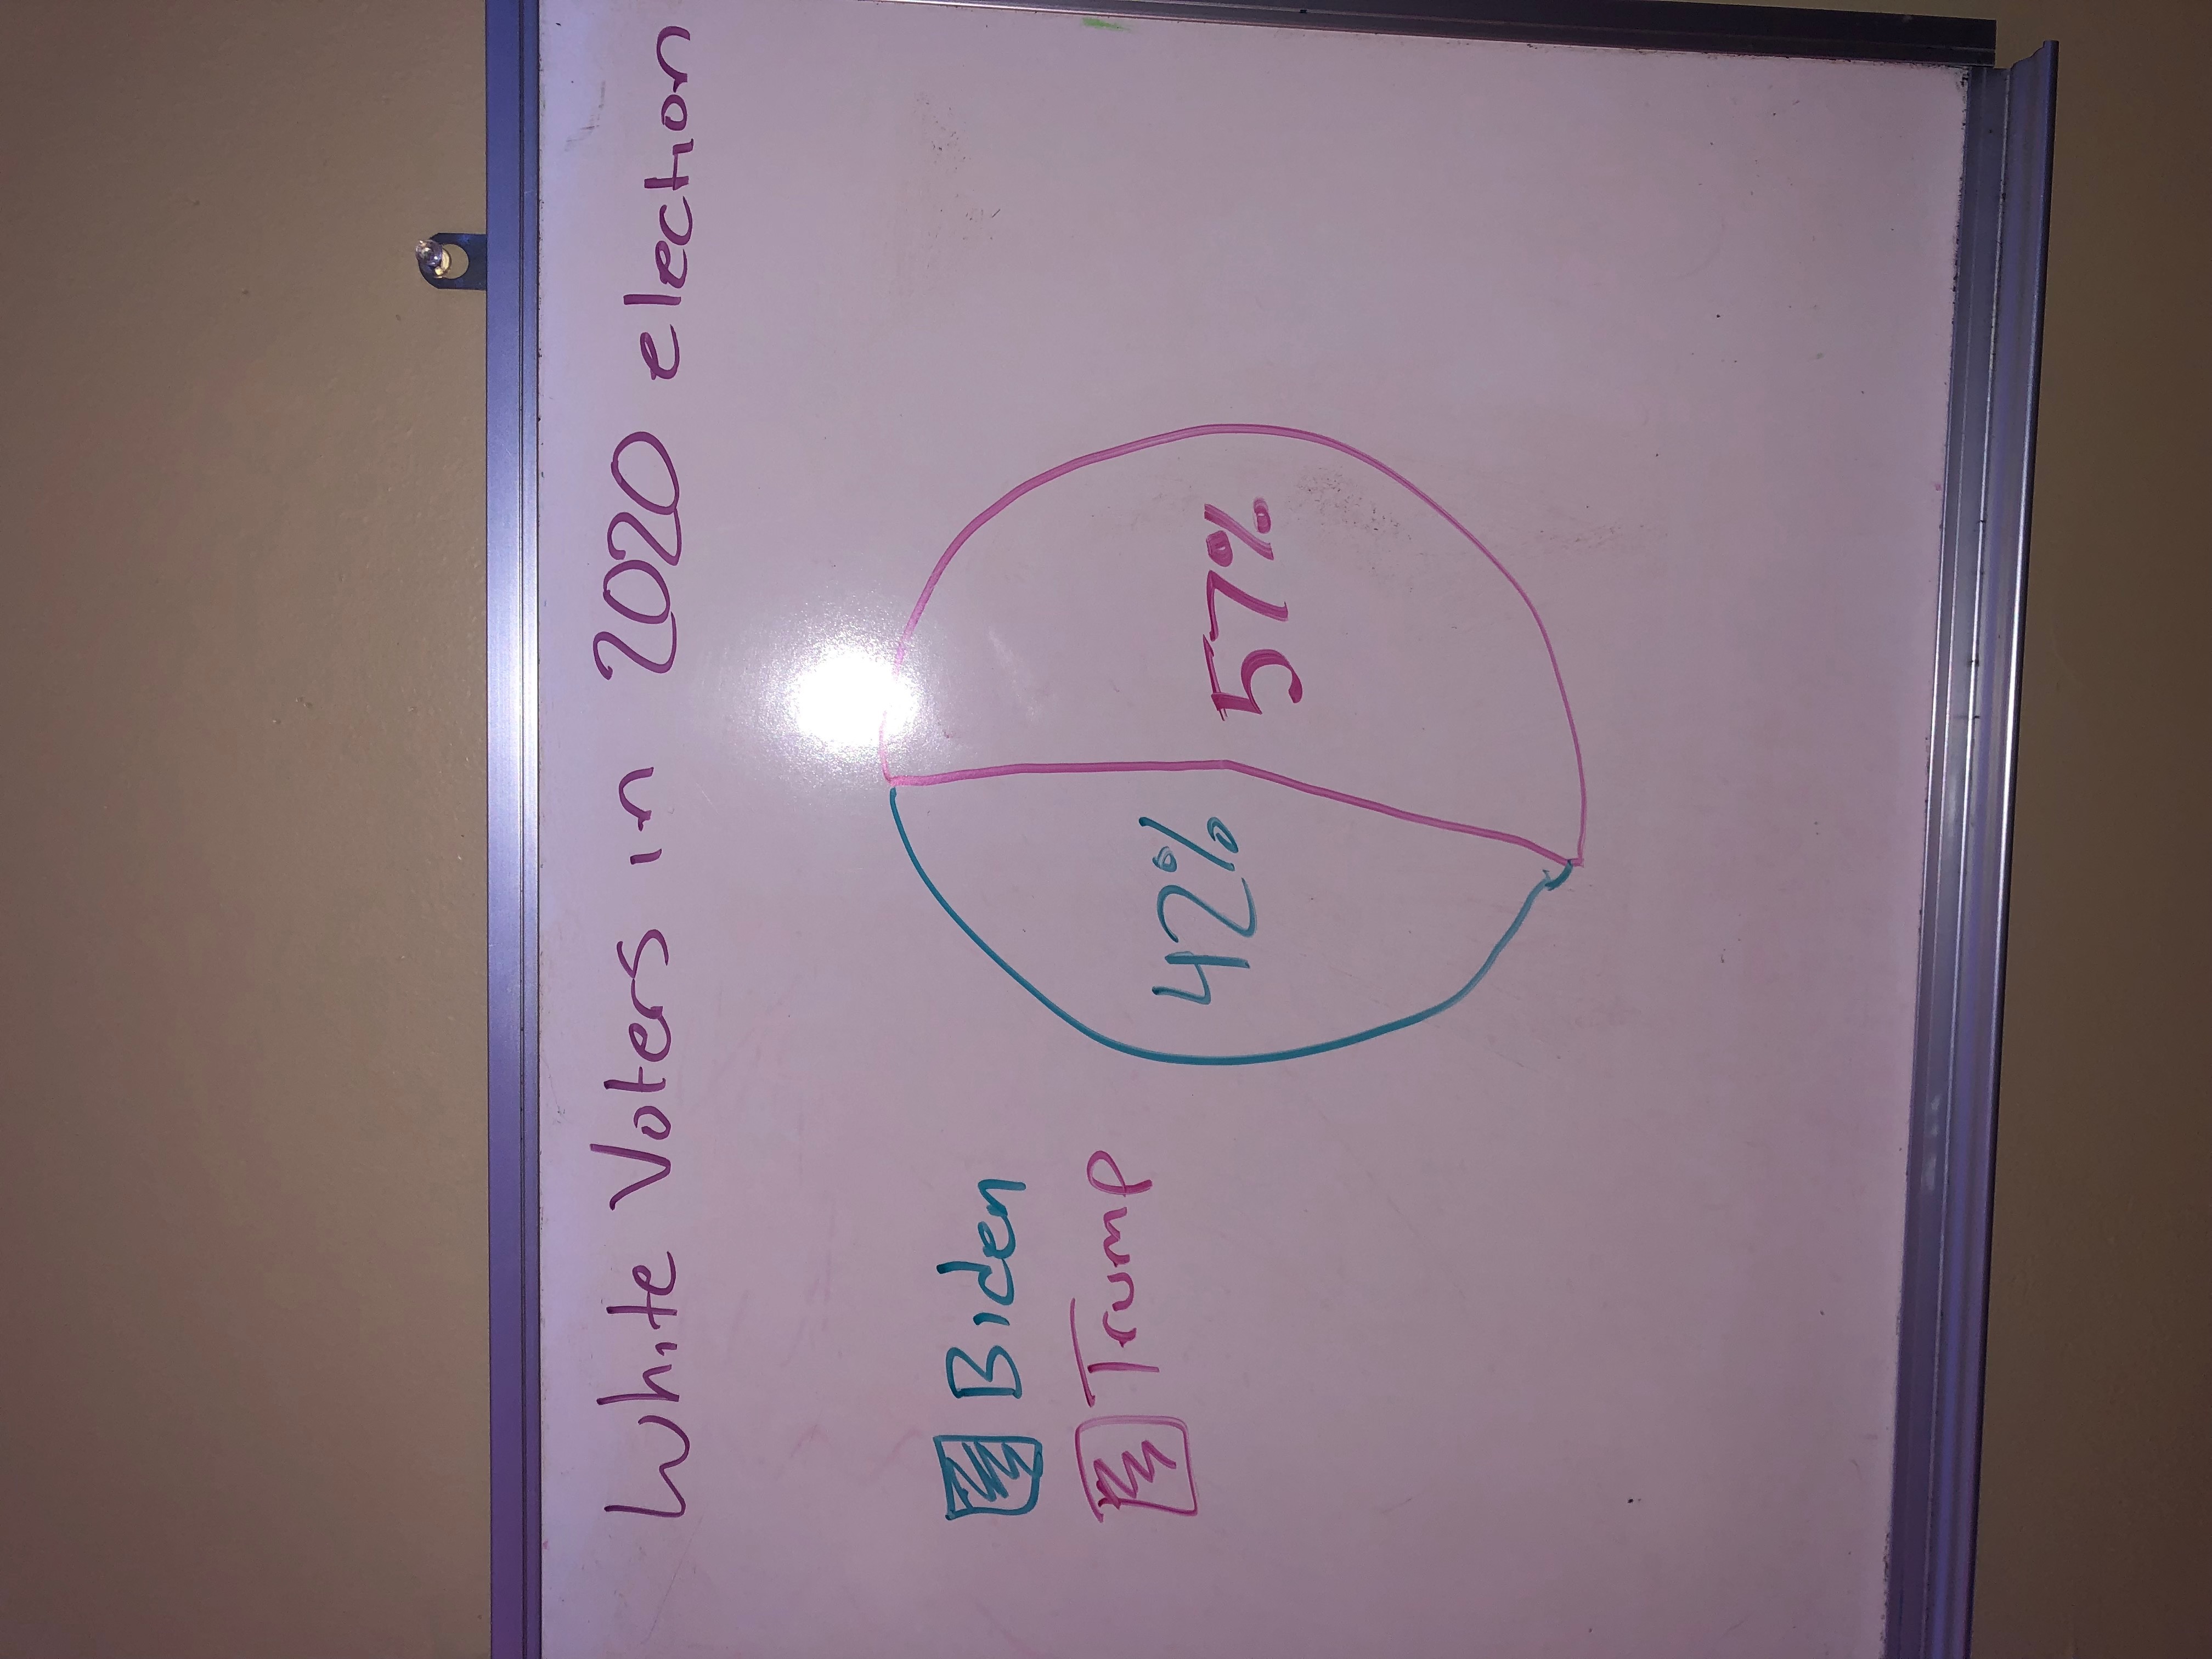 White Voters in 2020 election
Biden
Trump
42%
57%